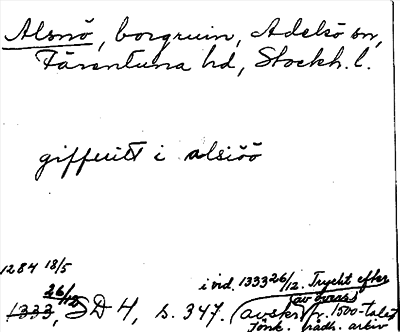 Alsnö, borgruin, Adelsö sn,
Färentuna hd, Stockh. l.
giffuitt i alsiöö
1284 18/5
i vid. 1333 26/12. Tryckt efter
26/12 (av överst)
1333, SD 4, s. 347. (avskr. fr. 1500-talet
Jönk. rådh. arkiv